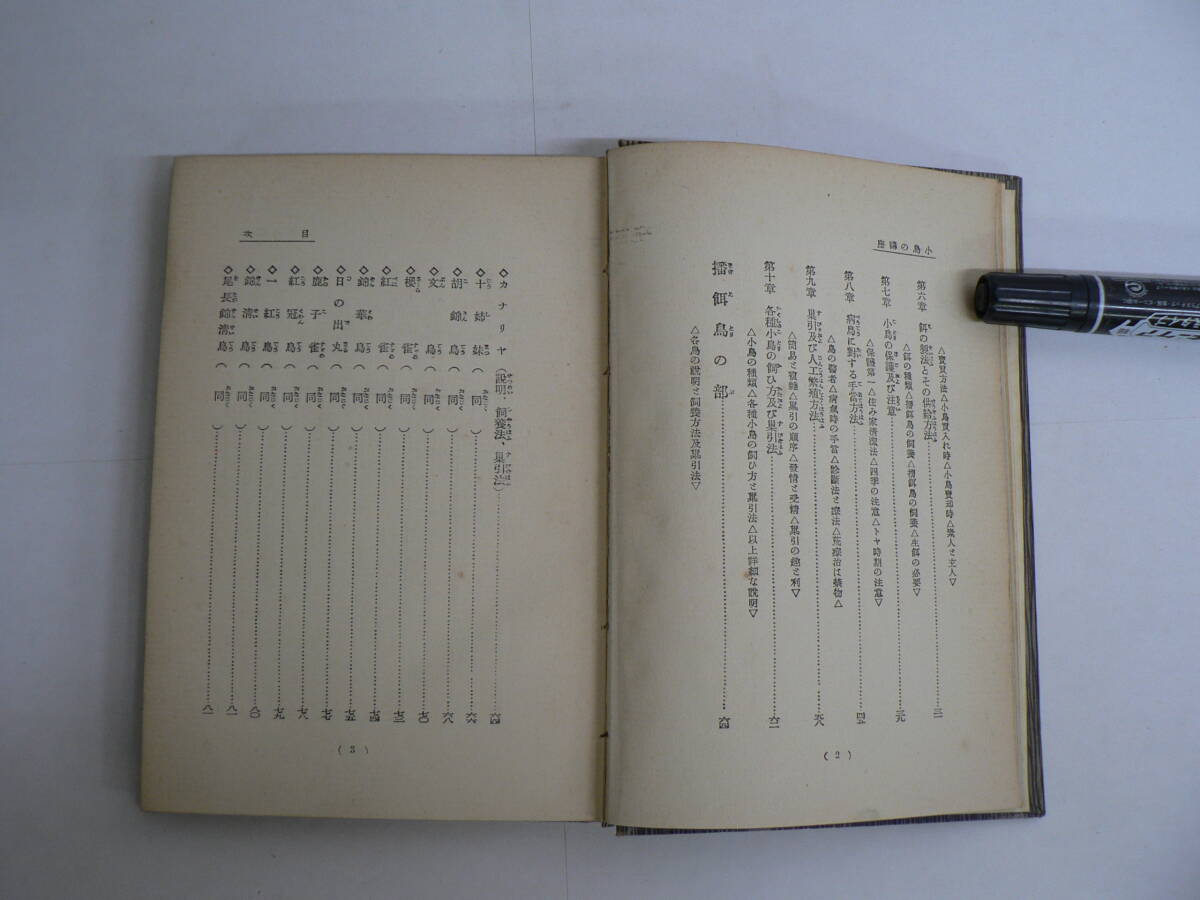 小鳥の講座
△賣買方法△小鳥買入れ時△小鳥賣却時△商人と主人▽
第六章 餌の製法とその供給方法
△餌の種類△擂餌鳥の飼養△擂餌鳥の飼養△生餌の必要▽
第七章 小鳥の保護及び注意
△保護第一△住み家清潔法△四季の注意△トヤ時期の注意▽
第八章 病鳥に對する手當方法
△鳥の醫者△病氣時の手當△診斷法と療法△荒療治は禁物△
第九章 巣引及び人工繁殖方法
△簡易と複雜△巣引の順序△發情と受精△巣引の
第十章 各種小鳥の飼ひ方及び巣引法
△小鳥の種類△各種小鳥の飼ひ方と巣引法△以上詳細な說明▽
擂餌鳥の部
△各鳥の說明と飼養方法及巣引法▽
(2)
目次
◇カナリヤ(說明、飼養法、巣引法)
◇十姉妹(同)
◇胡錦鳥(同)
◇文鳥(同)
◇櫻雀(同)
◇紅雀(同)
◇錦華鳥(同)
◇日の出丸(同)
◇鹿子雀(同)
◇紅冠鳥(同)
◇一紅鳥(同)
◇錦清鳥(同)
◇尾長錦清鳥(同)
(3)